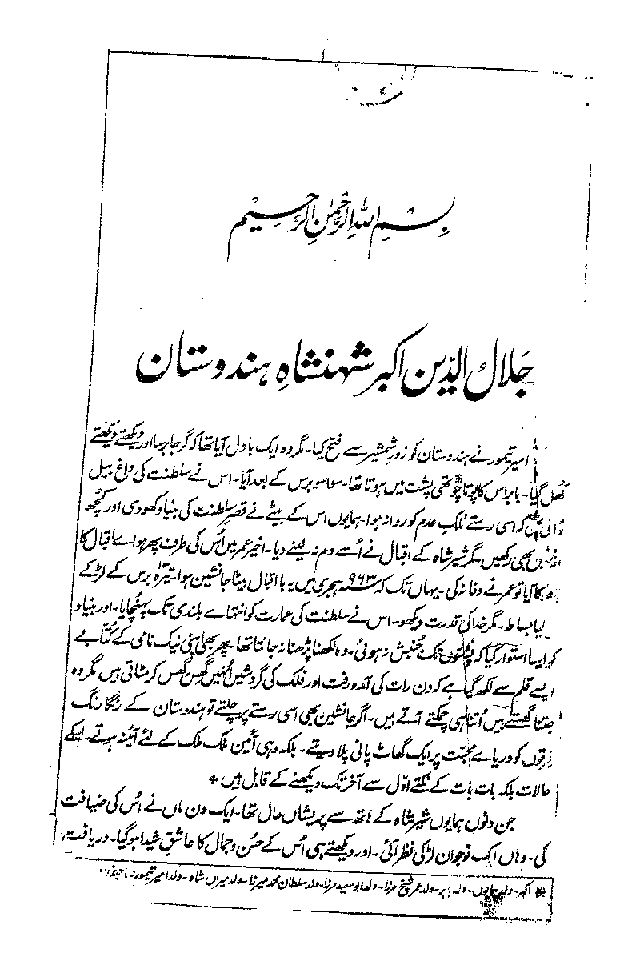 بسم اللہ الرحمن الرحیم
جلال الدین اکبر شہنشاہ ہندوستان
امیر تیمور نے ہندوستان کو زورِ شمشیر سے فتح کیا۔ مگر وہ ایک بادل آیا تھا کہ گرجا برسا اور دیکھتے دیکھتے
کھل گیا۔ بابر اس کا پوتا چوتھی پشت میں ہوتا تھا۔ سوا سو برس کے بعد آیا۔ اس نے سلطنت کی داغ بیل
ڈالی تھی کہ اسی رستے ملکِ عدم کو روانہ ہوا۔ ہمایوں اس کے بیٹے نے قصرِ سلطنت کی بنیاد کھودی اور کچھ
اینٹیں بھی رکھیں مگر شیر شاہ کے اقبال نے اُسے دم نہ لینے دیا۔ اخیر عمر میں اُس کی طرف پھر ہواے اقبال کا
جھوکا آیا تو عمر نے وفا نہ کی۔ یہاں تک کہ سنہ ۹۶۳ ہجری میں یہ با اقبال بیٹا جانشین ہوا۔ تیرہ برس کے لڑکے
کیا بساط۔ مگر خدا کی قدرت دیکھو۔ اس نے سلطنت کی عمارت کو انتہاے بلندی تک پہنچایا۔ اور بنیاد
کو ایسا استوار کیا کہ پشتوں تک جنبش نہ ہوئی۔ وہ لکھنا پڑھنا نہ جانتا تھا۔ پھر بھی اپنی نیک نامی کے کتابے
ایسے قلم سے لکھ گیا ہے کہ دن رات کی آمد و رفت اور فلک کی گردشیں اُنہیں گھس گھس کر مٹاتی ہیں مگر وہ
جتنا گھستے ہیں اُتنا ہی چمکتے آتے ہیں۔ اگر جانشین بھی اسی رستے پر چلتے تو ہندوستان کے رنگا رنگ
فرقوں کو دریاے محبت پر ایک گھاٹ پانی پلا دیتے۔ بلکہ وہی آئین ملک ملک کے لئے آئینہ ہوتے۔ اسکے
حالات بلکہ بات بات کے نکتے اوّل سے آخر تک دیکھنے کے قابل ہیں ٭
جن دنوں ہمایوں شیر شاہ کے ہاتھ سے پریشاں حال تھا۔ ایک دن ماں نے اُس کی ضیافت
کی۔ وہاں ایک نوجوان لڑکی نظر آئی۔ اور دیکھتے ہی اُس کے حسن و جمال کا عاشق شیدا ہو گیا۔ دریافت
اکبر۔ ولد ہمایوں۔ ولد بابر۔ ولد عمر شیخ مرزا۔ ولد ابو سعید مرزا۔ ولد سلطان محمد میرزا۔ ولد میراں شاہ۔ ولد امیر تیمور۔